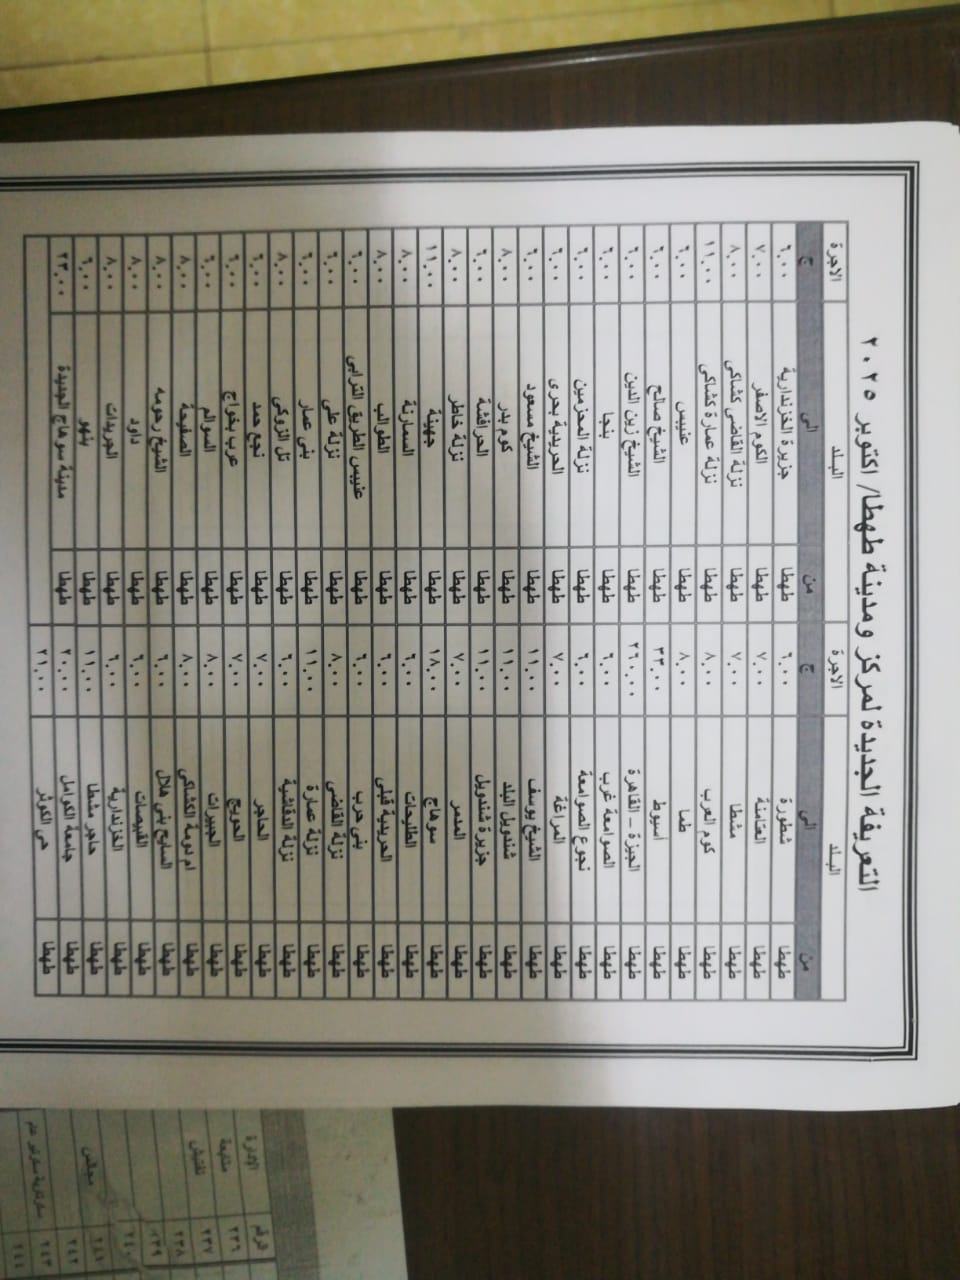 التعريفة الجديدة لمركز ومدينة طهطا/ اكتوبر ٢٠٢٥
البلد الاجرة البلد الاجرة
من الى ج من الى ج
طهطا شطورة ٦.٠٠ طهطا جزيرة الخزندارية ٦.٠٠
طهطا العتامنة ٧.٠٠ طهطا الكوم الاصفر ٧.٠٠
طهطا مشطا ٧.٠٠ طهطا نزلة القاضى كشاكى ٨.٠٠
طهطا كوم العرب ٨.٠٠ طهطا نزلة عمارة كشاكى ١١.٠٠
طهطا طما ٨.٠٠ طهطا عنيبس ٦.٠٠
طهطا اسيوط ٣٣.٠٠ طهطا الشيخ صالح ٦.٠٠
طهطا الجيزة – القاهرة ٢٦٠.٠٠ طهطا الشيخ زين الدين ٦.٠٠
طهطا الصوامعة غرب ٦.٠٠ طهطا بنجا ٦.٠٠
طهطا نجوع الصوامعة ٦.٠٠ طهطا نزلة المحزمين ٦.٠٠
طهطا المراغة ٧.٠٠ طهطا الحريدية بحرى ٦.٠٠
طهطا الشيخ يوسف ١١.٠٠ طهطا الشيخ مسعود ٦.٠٠
طهطا شندويل البلد ١١.٠٠ طهطا كوم بدر ٨.٠٠
طهطا جزيرة شندويل ١١.٠٠ طهطا الحرافشة ٦.٠٠
طهطا المدمر ٧.٠٠ طهطا نزلة خاطر ٨.٠٠
طهطا سوهاج ١٨.٠٠ طهطا جهينة ١١.٠٠
طهطا الطليحات ٦.٠٠ طهطا السمارنة ٨.٠٠
طهطا الحريدية قبلى ٦.٠٠ طهطا الطوالب ٨.٠٠
طهطا بنى حرب ٦.٠٠ طهطا عنيبس الطريق الترابى ٦.٠٠
طهطا نزلة القاضى ٨.٠٠ طهطا نزلة على ٦.٠٠
طهطا نزلة عمارة ١١.٠٠ طهطا بنى عمار ٦.٠٠
طهطا نزلة الدقاشية ٦.٠٠ طهطا تل الزوكى ٨.٠٠
طهطا الحاجر ٧.٠٠ طهطا نجع حمد ٦.٠٠
طهطا الحويج ٧.٠٠ طهطا عرب بخواج ٦.٠٠
طهطا الجبيرات ٨.٠٠ طهطا السوالم ٦.٠٠
طهطا ام دومة الكشاكى ٨.٠٠ طهطا الصفيحة ٨.٠٠
طهطا السايح بنى هلال ٦.٠٠ طهطا الشيخ رحومه ٨.٠٠
طهطا القبيصات ٦.٠٠ طهطا داود ٨.٠٠
طهطا الخزندارية ٦.٠٠ طهطا الجريدات ٨.٠٠
طهطا حاجر مشطا ١١.٠٠ طهطا بنهو ٦.٠٠
طهطا جامعة الكوامل ٢٠.٠٠ طهطا مدينة سوهاج الجديدة ٢٣.٠٠
طهطا حى الكوثر ٢١.٠٠
الرقم الإدارة
٢٣٦ متابعة
٢٣٧ تفتيش
٢٣٨
٢٣٩
٢٤١ مجالس
٢٤٢
٢٤٣
٢٤٤